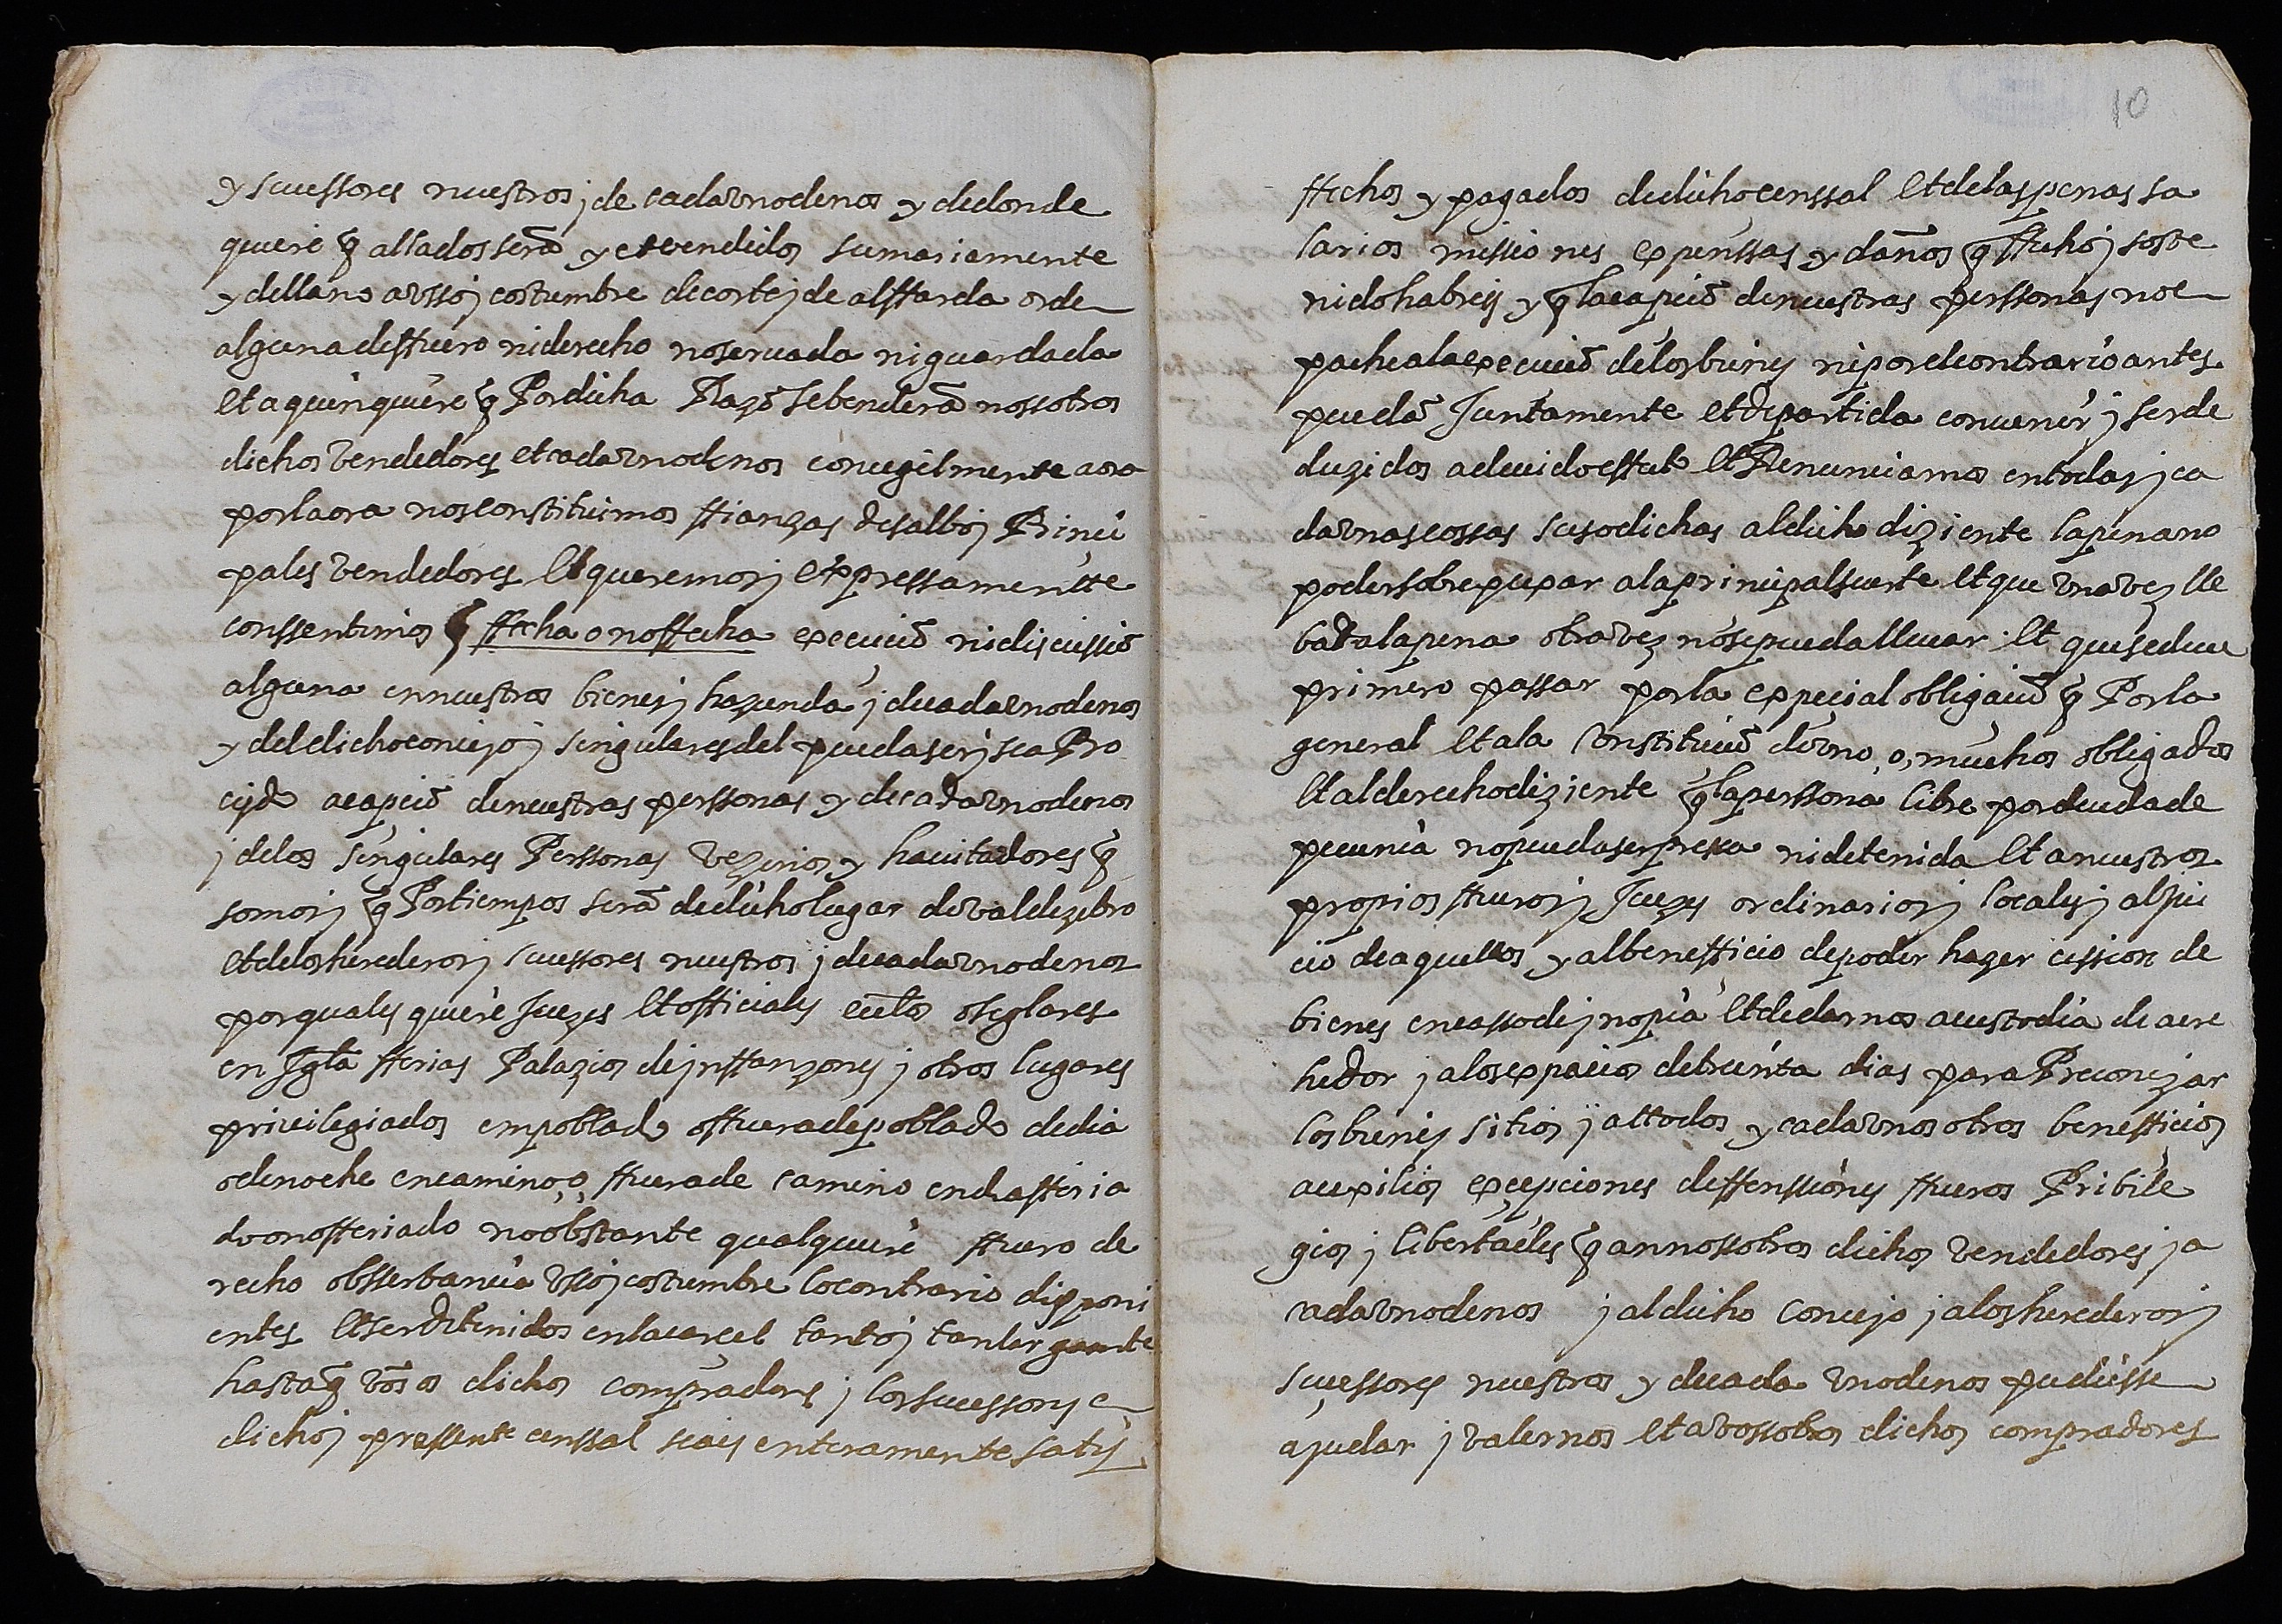 y scuessores nuestros j de cadavnodenos y dedonde
quiere q̃ allados serã y etvendidos sumariamente
y dellano avsso j costumbre decorte j de alffarda orde
alguna deffuero niderecho noservada niguardada
Et aquienquiere q̃ Pordicha Razõ sebenderã nossotros
dichos vendedores etcadavnodenos concegilmente aora
porlaora nosconstituimos ffianzas desalbo j Princi
pales vendedores Et queremos j expressamente
conssentimos q̃ ffecha onoffecha execuciõ nidiscussiõ
alguna ennuestros bienes j hazienda j decadavnodenos
y deldichoconcejo j singularesdel puedaser j sea Pro
cejdo acapciõ denuestras perssonas y decadavnodenos
j delos singulares Perssonas vezinos y havitadores q̃
somos j q̃ Portiempos serã dedicholugar devaldezebro
etdelosherederos j scuessores nuestros j decadavnodenos
porquales quiere Juezes Etofficiales ecc̃tos oseglares
en Jglã fferias Palazios dejnffanzones j otros lugares
privilegiados empoblado offueradepoblado dedia
odenoche encamino o ffuerade camino endiafferia
do onofferiado noobstante qualquiere ffuero de
recho obsserbancia vsso j costumbre locontrario disponi
entes Etserdetenidos enlacarcel tanto j tanlargamente
hastaq̃ vos os dichos compradores j losscuessores e
dicho j pressente censsal seais enteramente satis
10
ffechos y pagados dedichocenssal Etdelaspenas sa
larios missiones expenssas y daños q̃ ffecho j soste
nidohabreis y q̃ lacapciõ denuestras perssonas noe
pacheala execuciõ delosbienes niporelcontrario antes
puedã Juntamente etdepartida convenir j serde
duzidos adevidoeffecto EtRenunciamos entodas j ca
davnascossas susodichas aldicho diziente lapenano
podersobrepuxar alaprincipalsuerte Etque vnavez lle
badalapena otravez nosepuedallevar. Et quesedeve
primero passar porla expecial obligaciõ q̃ Porla
general Etala constituciõ devno, o, muchos obligados
Etalderechodiziente q̃ laperssona libre pordeudade
pecunia nopuedaserpressa nidetenida Et anuestros
propios ffueros j Juezes ordinarios j locales j alJui
cio deaquellos y albenefficio depoder hazer cession de
bienes encassodejnopia Etdedarnos acustodia deacre
hedor j alosexpacios detreinta dias paraPreconizar
losbienes sitios j attodos y cadavnosotros benefficios
auxilios excepciones deffenssiones ffueros Pribile
gios j libertades q̃ annossotros dichos vendedores j a
cadavnodenos j aldicho concejo j alosherederos j
scuessores nuestros y decada vnodenos pudiesse
ajudar j valernos Etavossotros dichos compradores